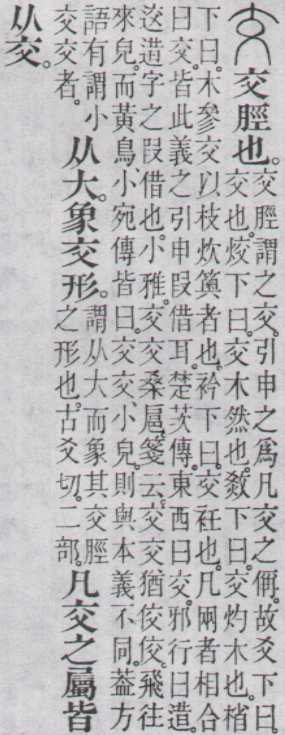 交脛也。交脛謂之交。引申之爲凡交之偁。故爻下曰
交也。烄下曰。交木然也。下曰。交灼木也。㮐
下曰。木參交以枝炊䉛者也。衿下曰。交衽也。凡兩者相合
曰交。皆此義之引申叚借耳。楚茨傳。東西曰交。邪行曰逪。
䢒逪字之叚借也。小雅。交交桑扈。箋云。交交猶佼佼。飛往
來皃。而黃鳥、小宛傳皆曰。交交、小皃。則與本義不同。葢方
語有謂小
交交者。从大。象交形。謂从大而象其交脛
之形也。古爻切。二部。凡交之屬皆
从交。